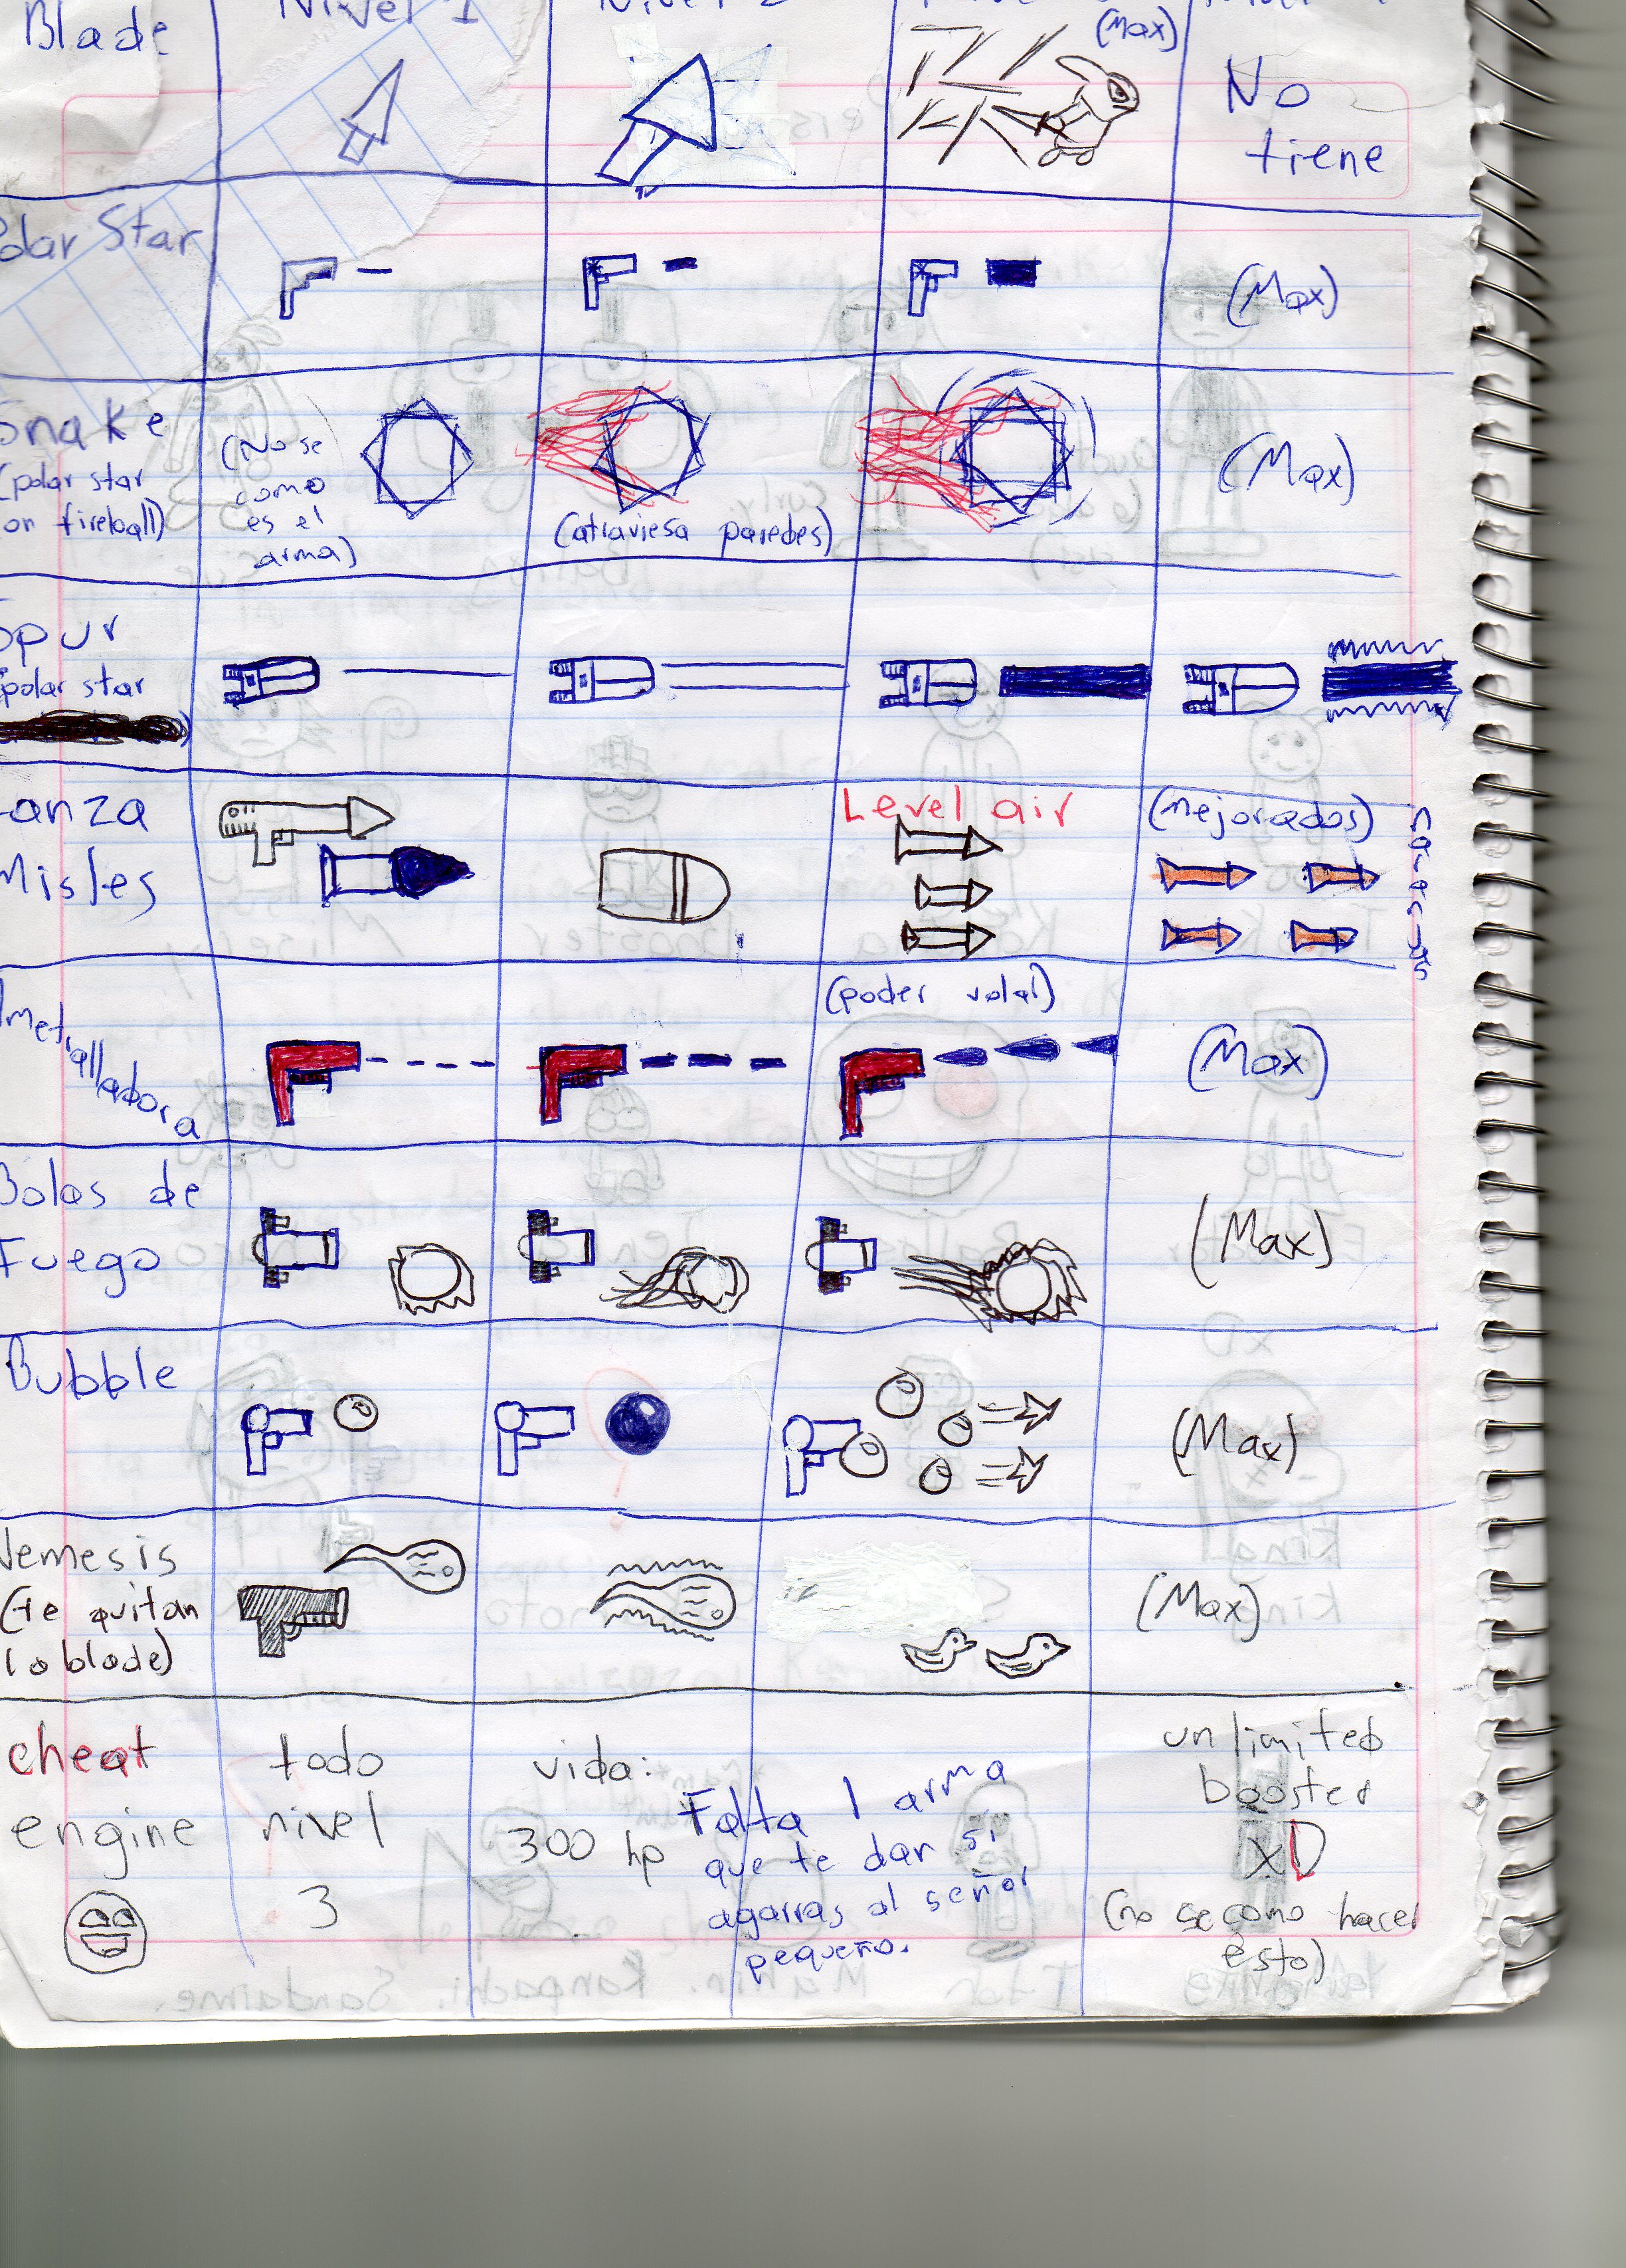 Blade
Nivel 1
Nivel 2
(Max)
No
tiene
Polar Star
(Max)
Snake
(polar star
con fireball)
(No se
como
es el
arma)
(atraviesa paredes)
(Max)
Spur
(polar star
)
Lanza
Misles
Level air
(mejorados)
Ametralladora
(poder volal)
(Max)
Bolas de
Fuego
(Max)
Bubble
(Max)
Nemesis
(te quitan
la blade)
(Max)
cheat
engine
todo
nivel
3
vida:
300 hp
Falta 1 arma
que te dar si
agarras al señor
pequeño.
unlimited
booster
xD
(no se como hacer
esto)